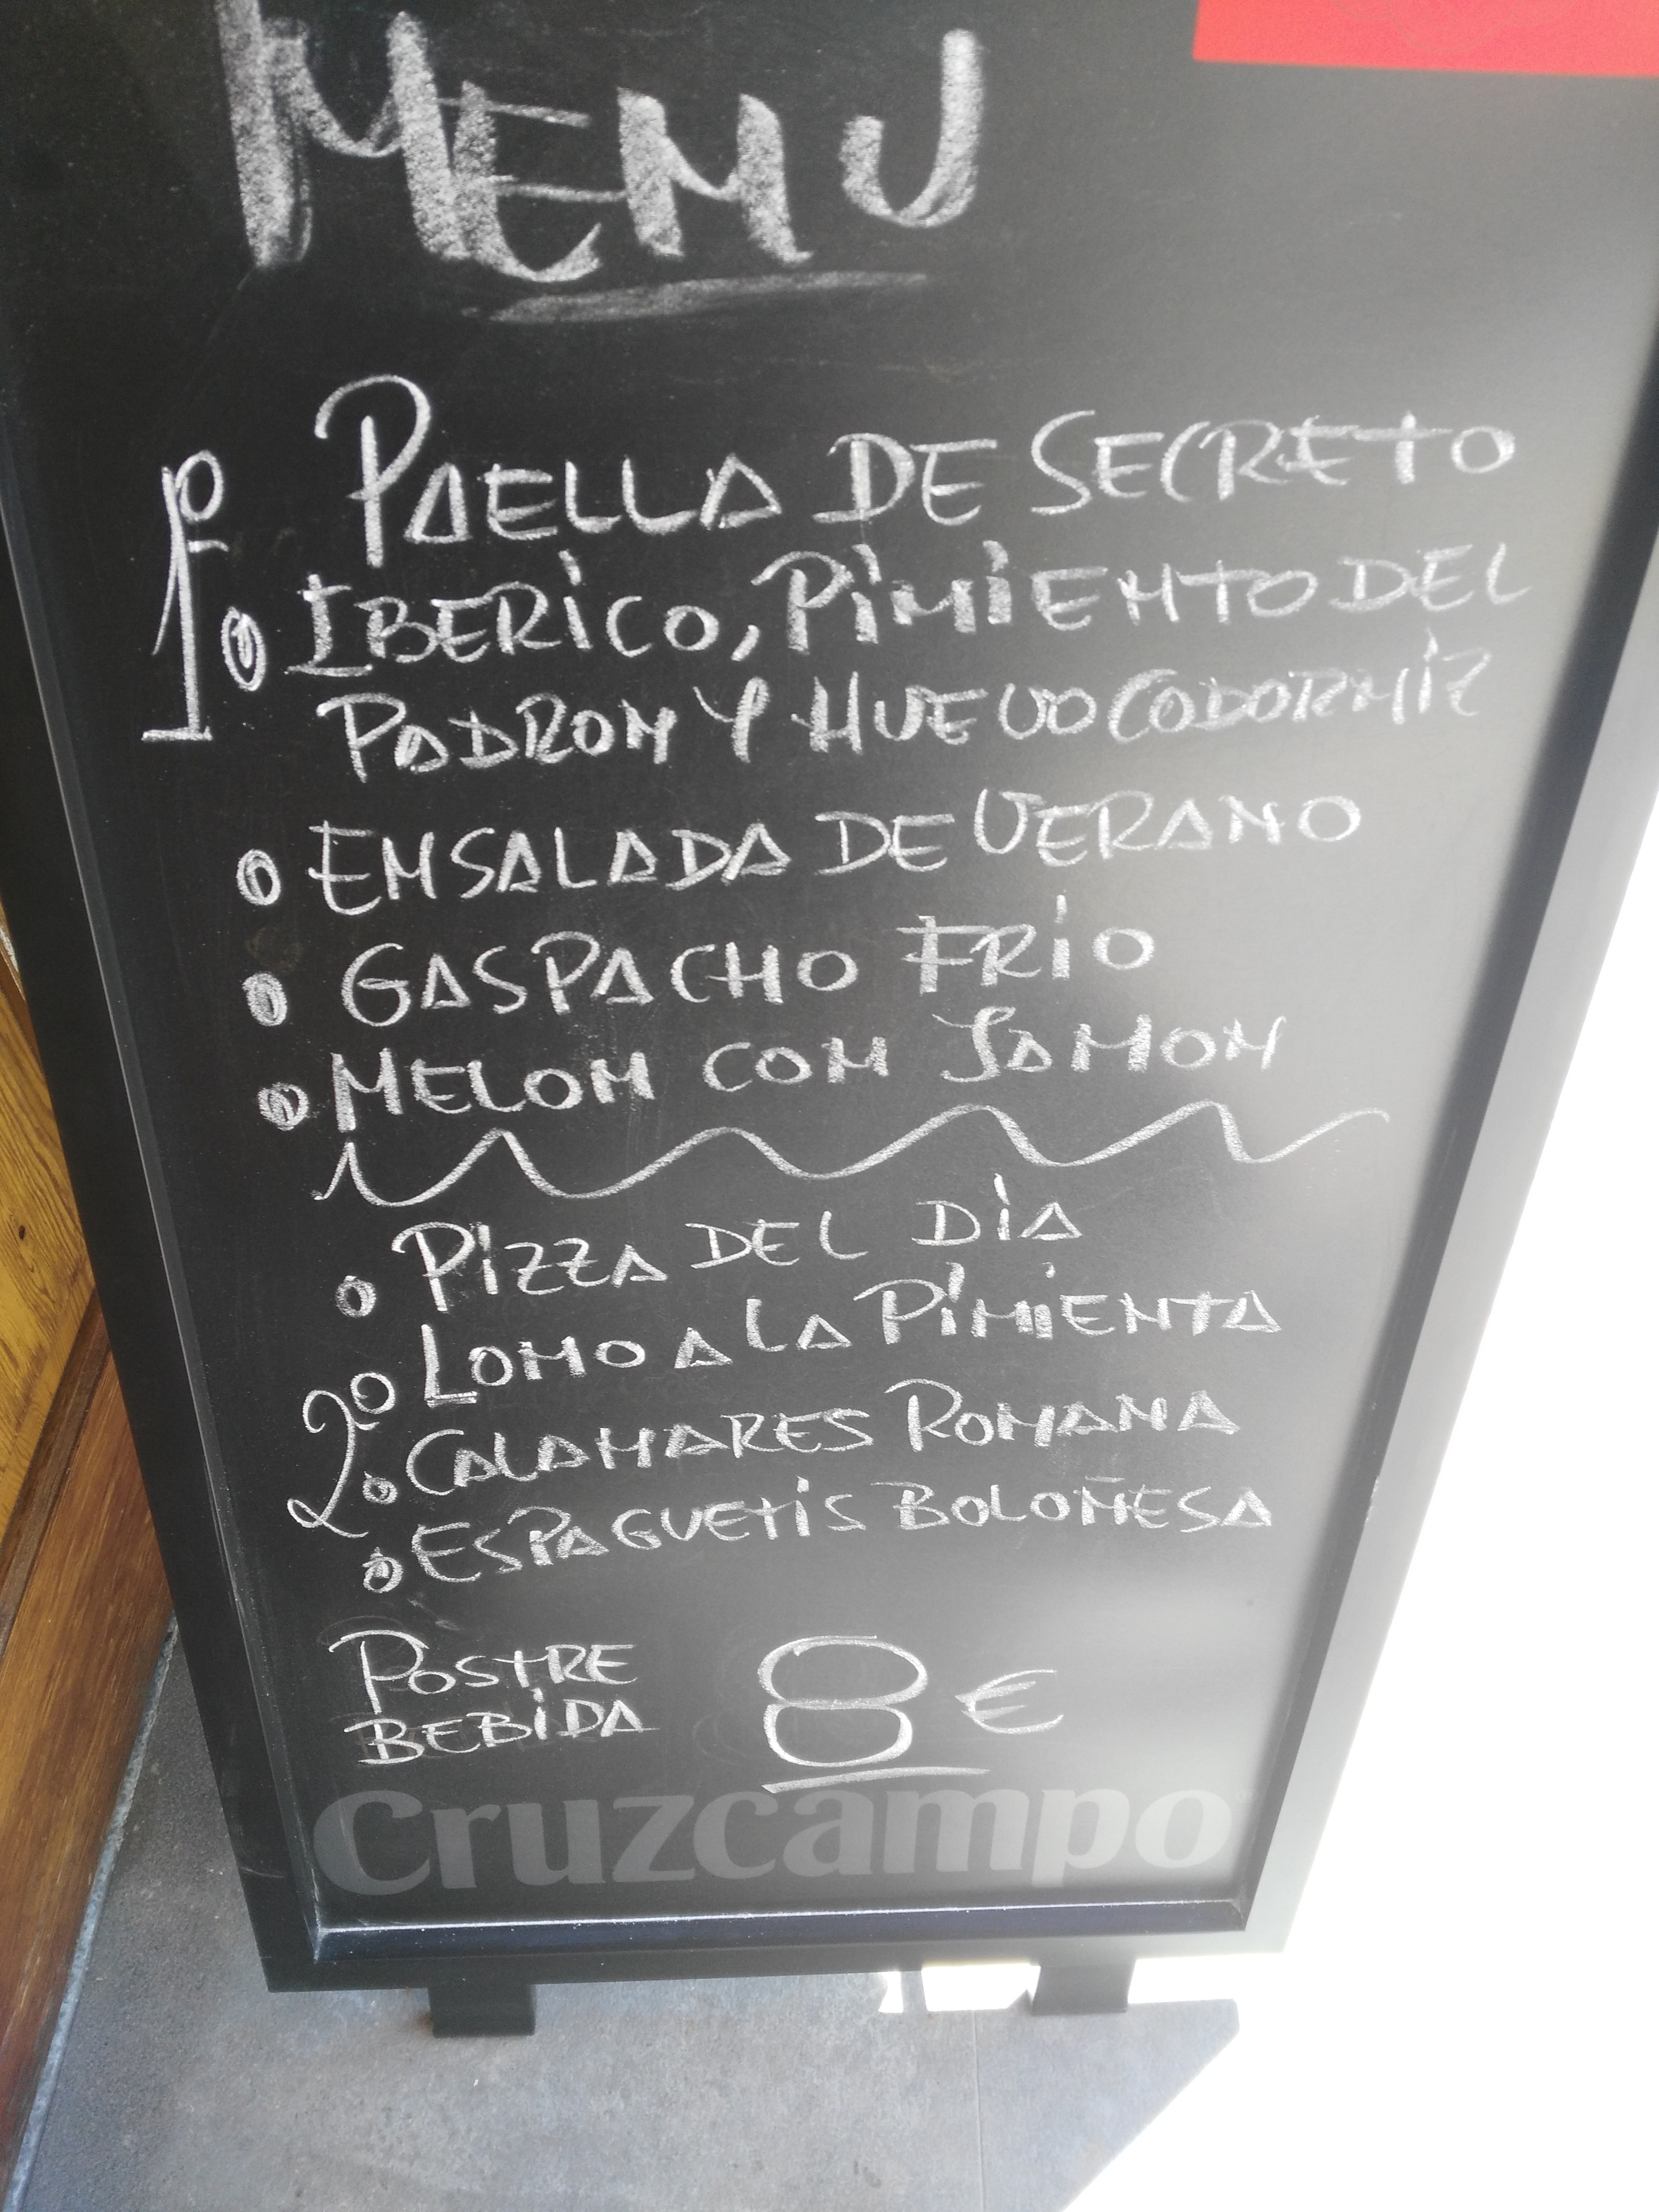 MENU
1º PAELLA DE SECRETO
IBERICO, PIMIENTO DEL
PADRON Y HUEVO CODORNIZ
ENSALADA DE VERANO
GASPACHO FRIO
MELON CON JAMON
PIZZA DEL DIA
LOMO A LA PIMIENTA
2º CALAMARES ROMANA
ESPAGUETIS BOLOÑESA
POSTRE
BEBIDA 8€
Cruzcampo